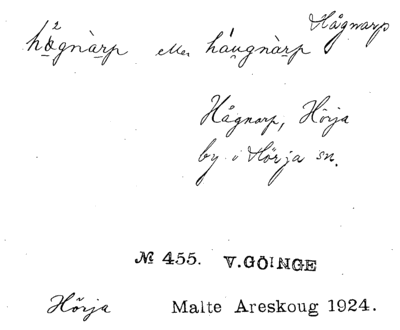 Hågnarp
hǫ²gnàrp eller háu̯gnàrp
Hågnarp, Hörja
by i Hörja sn.
№ 455. V. GÖINGE
Hörja Malte Areskoug 1924.